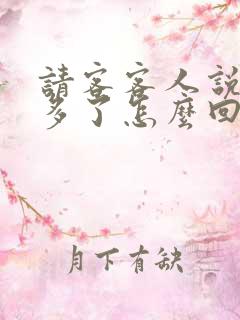 請客客人說
多了怎麼回
月下有缺